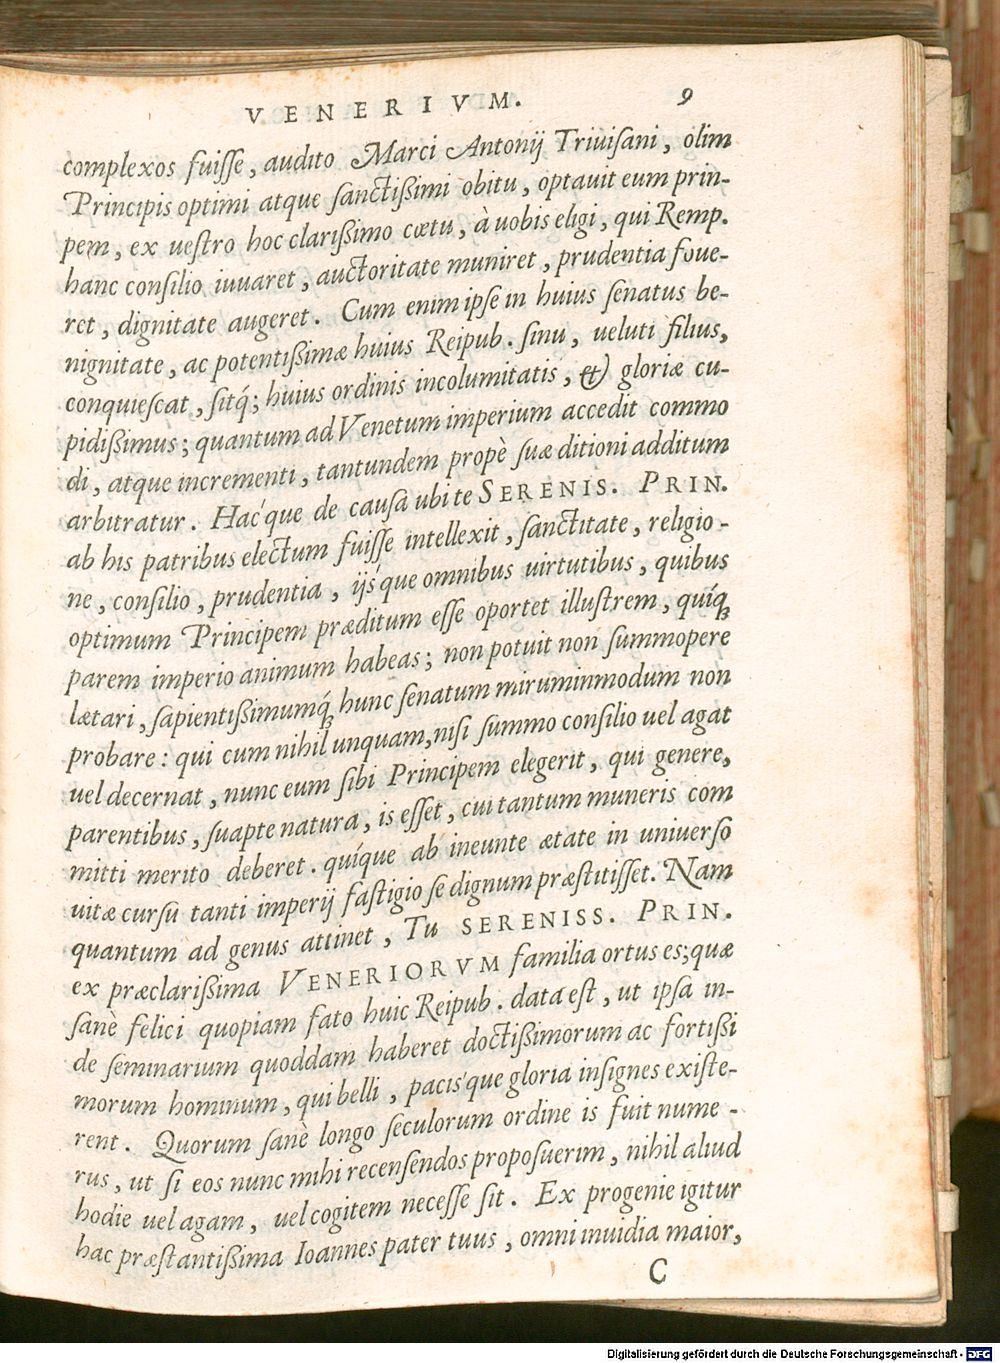 VENERIVM. 9
complexos fuiſſe, audito Marci Antonij Triuiſani, olim
Principis optimi atque ſanctißimi obitu, optauit eum prin-
pem, ex ueſtro hoc clarißimo cœtu, à uobis eligi, qui Remp.
hanc conſilio iuuaret, auctoritate muniret, prudentia foue-
ret, dignitate augeret. Cum enim ipſe in huius ſenatus be-
nignitate, ac potentißimæ huius Reipub. ſinu, ueluti filius,
conquieſcat, ſitq́; huius ordinis incolumitatis, & gloriæ cu-
pidißimus; quantum ad Venetum imperium accedit commo
di, atque incrementi, tantundem propè ſuæ ditioni additum
arbitratur. Haćque de cauſa ubi te SERENIS. PRIN.
ab his patribus electum fuiſſe intellexit, ſanctitate, religio-
ne, conſilio, prudentia, ijśque omnibus uirtutibus, quibus
optimum Principem præditum eſſe oportet illuſtrem, quíq;
parem imperio animum habeas; non potuit non ſummopere
lætari, ſapientißimumq́; hunc ſenatum mirum inmodum non
probare: qui cum nihil unquam, niſi ſummo conſilio uel agat
uel decernat, nunc eum ſibi Principem elegerit, qui genere,
parentibus, ſuapte natura, is eſſet, cui tantum muneris com
mitti merito deberet. quíque ab ineunte ætate in uniuerſo
uitæ curſu tanti imperij faſtigio ſe dignum præſtitiſſet. Nam
quantum ad genus attinet, Tu SERENISS. PRIN.
ex præclarißima VENERIORVM familia ortus es; quæ
ſanè felici quopiam fato huic Reipub. data eſt, ut ipſa in-
de ſeminarium quoddam haberet doctißimorum ac fortißi
morum hominum, qui belli, paciśque gloria inſignes exiſte-
rent. Quorum ſanè longo ſeculorum ordine is fuit nume-
rus, ut ſi eos nunc mihi recenſendos propoſuerim, nihil aliud
hodie uel agam, uel cogitem neceſſe ſit. Ex progenie igitur
hac præſtantißima Ioannes pater tuus, omni inuidia maior,
C
Digitalisierung gefördert durch die Deutsche Forschungsgemeinschaft - DFG